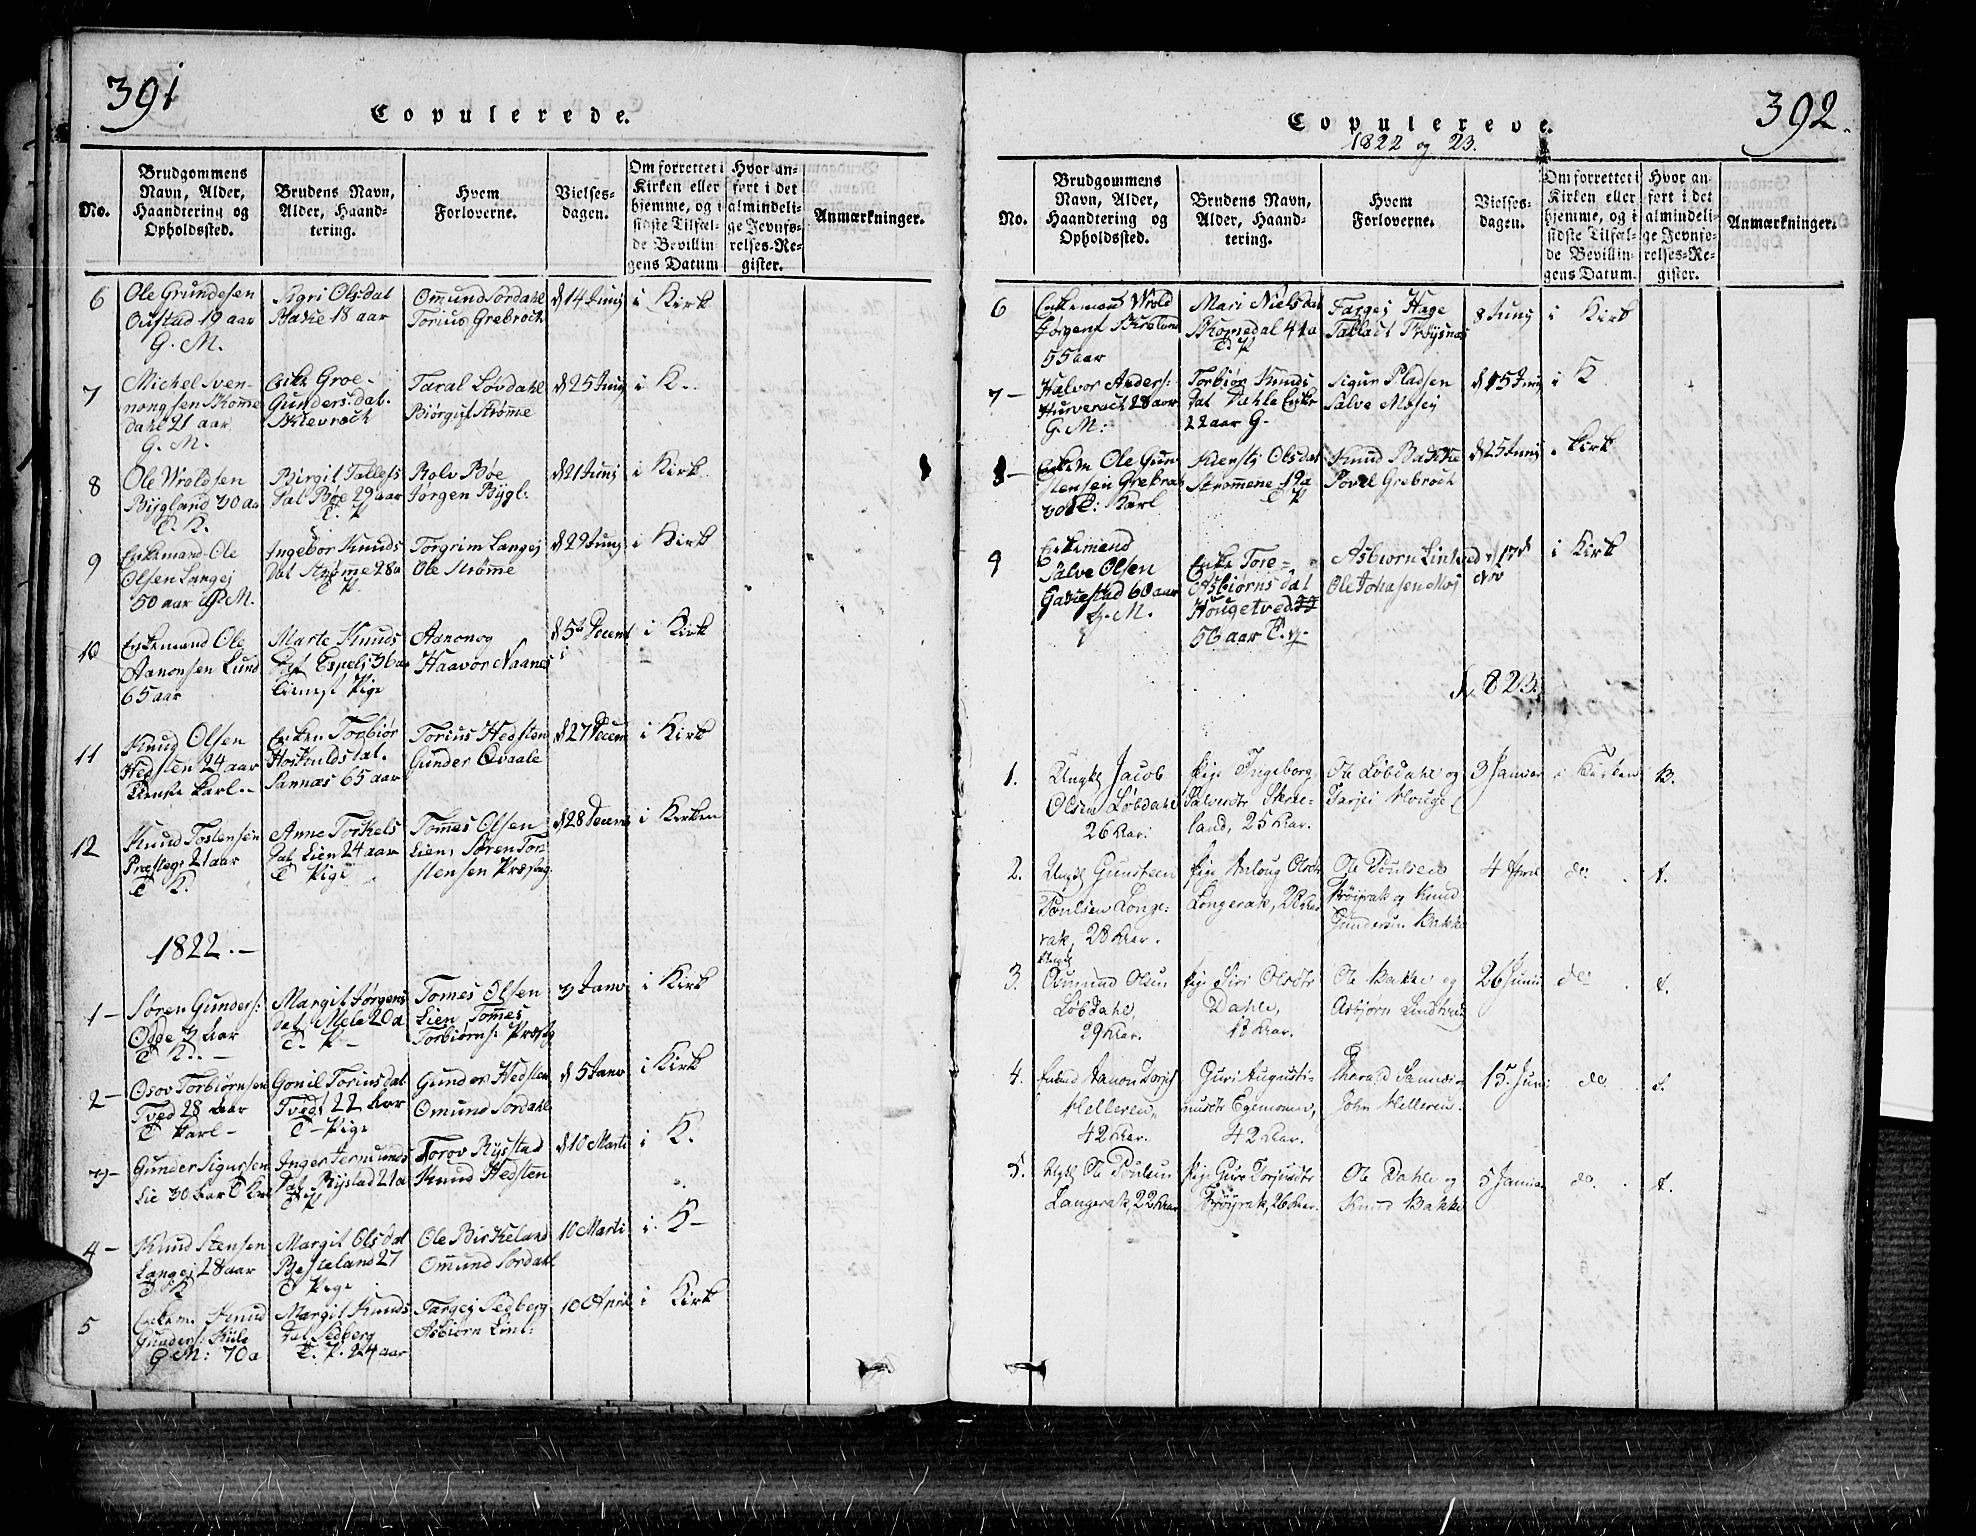 391
Copulerede.
No.
Brudgommens
Navn, Alder,
Haandtering og
Opholdssted.
Brudens Navn,
Alder, Haand-
tering.
Hvem
Forloverne.
Vielses-
dagen.
Om forrettet i
Kirken eller
hjemme, og i
sidste Tilfæl-
de Bevillin-
gens Datum
Hvor an-
ført i det
almindeli-
ge Jevnfø-
relses-Re-
gister.
Anmærkninger.
6
Ole Grundesen
Oustad 19 aar
G. M.
Sigri Olsdat
Bakke 18 aar
Ommund Sordahl
Torius Grebroch
d 14 Junÿ
i Kirk
7
Michel Sven-
nongsen Skomme
dahl 21 aar
G. M.
Enke Groe-
Gunders: dat.
Skievroch
Taral Løvdahl
Biørguf Strømme
d 25 Junÿ
i K.
8
Ole Wroldsen
Bÿgland 30 aa
T. K.
Birgit Tallefs
dat Bøe 29 aar
T. P
Rolv Bøe
Jørgen Bÿgl:
d 21 Junÿ
i Kirk
9
Enkemand Ole
Olsen Langej
50 aar G. M.
Ingebor Knuds
dat Strømme 28 a
T P.
Torgrim Langej
Ole Strømme
d 29 Junÿ
i Kirk
10
Enkemand Ole
Aanonsen Lund
65 aar
Marte Knuds
dat Espelj 36 aa
tienest Pige
Aanon og
Haavor Naanes
d 5te Decem
i Kirk
11
Knud Olsen
Hedsten 24 aar
Tienste Karl.-
Enken Torbiør
Hoskulds dat.
Sannæs 65 aar
Torius Hedsten
Gunder Qvaale
d 27 Decem
i Kirk
12
Knud Tostensen
Præsteg: 21 aar
T K.
Anne Torkels
dat Lien 24 aar
T Pige
Tomes Olsen
Lien, Søren Tor
stensen Præsteg
d 28 Decem
i Kirken
1822.-
1-
Søren Gunders:
Odde 3 aar
T K. -
Margit Jørgens
dat Mele 20 a
T. P-
Tomes Olsen
Lien Tomes
Torbiørns: Præstg
3 Janv
i Kirk
2-
Osov Torbiørnsen
Tved 28 aar
T Karl-
Gonil Toriusdat
Tved 22 aar
T - Pige
Gunder Hedsten
Omund Sordahl
d 5 Janv
i Kirk
3-
Gunder Sigursen
Lie 30 aar T Karl
Inger Jermunds
dat Rÿstad 21 a
T P
Torov Rÿstad
Knud Hedsten
d 10 Marti
i K.
4-
Knud Stensen
Langej 28 aar
T K
Margit Olsdat
Birkeland 27
T Pige
Ole Birkeland
Ommund Sordahl
10 Marti
i K-
5
Enkem. Knud
Gunders: Kile
G M: 70 a
Margit Knuds
dat Sedberg
T. P. 24 aar
Targej Sedberg
Asbiørn Lint:
10 April
i Kirk
392.
Copulerede.
1822 og 23.
No.
Brudgommens
Navn, Alder,
Haandtering og
Opholdssted.
Brudens Navn,
Alder, Haand-
tering.
Hvem
Forloverne.
Vielses-
dagen.
Om forrettet i
Kirken eller
hjemme, og i
sidste Tilfæl-
de Bevillin-
gens Datum.
Hvor an-
ført i det
almindeli-
ge Jevnfø-
relses-Re-
gister.
Anmærkninger.
6
Enkemand Wrold
Jørgens
55 aar
Mari Nielsdat
Skomedal 41 a
T P
Targej Hage
Tallact Frøÿsnes
8 Junÿ
i Kirk
7-
Halvor Anders:
Hurveroch 28 aar
G. M:
Torbiør Knuds
dat Dahle Enke
22 aar G-
Sigur Pladsen
Salve Mosej
d 15 Junÿ
i K
8-
Enkem Ole Gun
stensen Grebrok
Karl
Kiersti Olsdat
Strømmene 19 a
T P
Knud Bakke
Povel Grebroch
d 25 Junÿ
i Kirk
9
Enkemand
Salve Olsen
Gakkestad 60 aar
G. M.
Enke Tore-
Asbiørns dat
Hougetved
56 aar
Asbiørn Lintved
Ole Johasen Moj
17d
Nov
i Kirk
1823.
1.
Ungk Jacob
Olsen Løbdahl
26 Aar.
Pige Ingeborg
Salvesdtr Skree-
land, 25 Aar.
Ole Løbdahl og
Tarjei Houge
3 Januar
i Kirken
2.
Ungk Gunsteen
Poulsen Longe-
rak, 28 Aar.
Pige Aaloug Olsdtr
Longerak,
Ole Poulsen
Frøÿrak og Knud
Gundersen Bakke
4 April
do.
t.
3.
Ungk
Omund Olsen
Løbdahl,
29 Aar.
Pige Siri Olsdtr
Dahle,
18 Aar.
Ole Bakke og
Asbjørn Lindtveid
26 Junii
do
t.
4.
Enkmd Aanon Torjus
Helleren,
42 Aar.
Guri Augusti-
nusdtr Egemonen,
42 Aar.
Tharald Sannes
John Helleren.
15. Juni
do.
5.
Ungk Ole Poulsen
Langerak, 22 Aar
Pige Guro Torjusdtr
Frøÿrak, 26 Aar.
Ole Dahle og
Knud Bakke
5 Januar
do.
t.